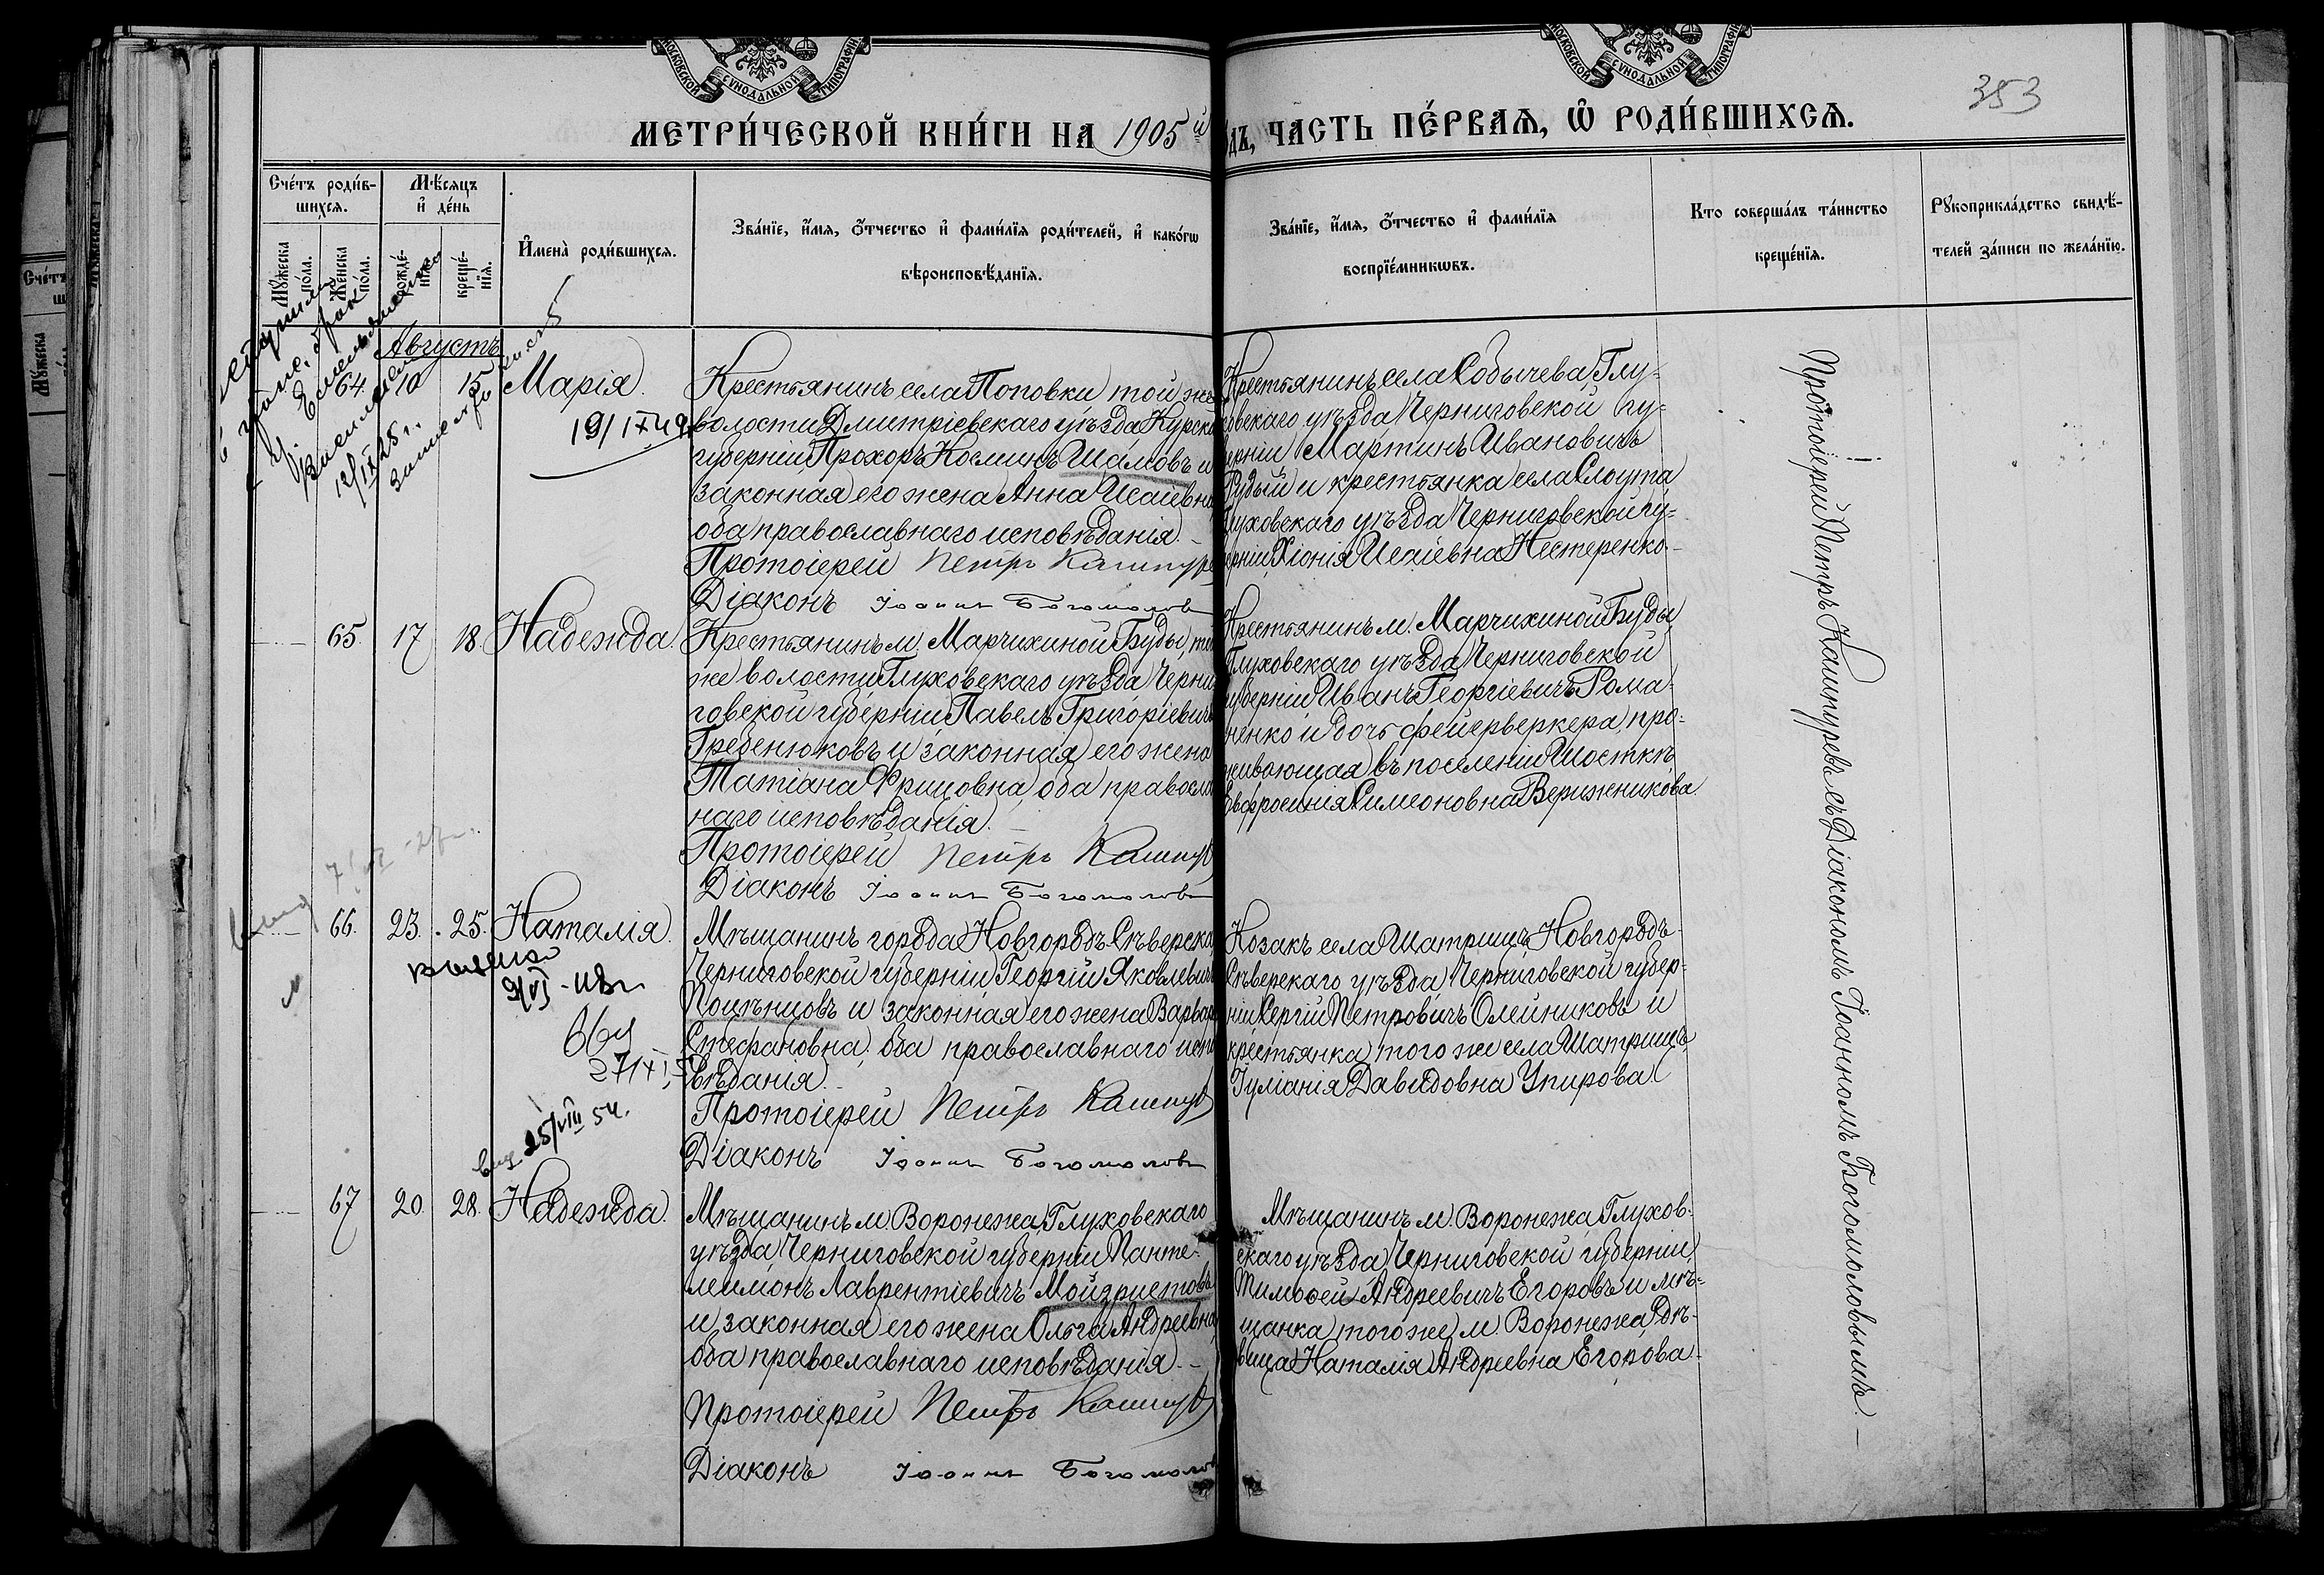 МОСКОВСКОЙ СѴНОДАЛЬНОЙ ТИПОГРАФІИ
МОСКОВСКОЙ СѴНОДАЛЬНОЙ ТИПОГРАФІИ
353
МЕТРИ́ЧЕСКОЙ КНИ́ГИ НА 1905й
дъ, ЧАСТЬ ПЕ́РВАѦ, Ѡ҆ РОДИ́ВШИХСѦ.
Сче́тъ роди́в-
шихсѧ.
Мꙋ́жеска пола.
Же́нска по́ла.
Мѣ́сѧцъ
и҆ де́нь
рожде́-
нїѧ.
креще́-
нїѧ.
И҆мена̀ роди́вшихсѧ.
Зва́нїе, и҆́мѧ, ѻ҆́тчество и҆ фами́лїѧ роди́телей, и҆ како́гѡ
вѣроисповѣ́данїѧ.
Зва́нїе, и҆́мѧ, ѻ҆́тчество и҆ фами́лїѧ
воспрїе́мникѡвъ.
Кто соверша́лъ та́инство
креще́нїѧ.
Рꙋкоприкла́дство свидѣ́-
телей за́писи по жела́нїю.
Августъ
64 10 15 Марія.
12/IX 25 г.
19/IX 49
Крестьянинъ села Поповки той же
волости Дмитріевскаго уѣзда Курско
губерніи Прохоръ Косминъ Шамовъ и
законная его жена Анна Исаіевна
оба православнаго исповѣданія.
Протоіерей Петръ Кашпуре
Діаконъ Іоаннъ Богомоловъ
Крестьянинъ села Собычева Глу-
ховскаго уѣзда Черниговской гу-
берніи Мартинъ Ивановичъ
Рудый и крестьянка села Слоута
Глуховскаго уѣзда Черниговской гу-
берніи Хіонія Исаіевна Нестеренко.
65. 17 18. Надежда.
Крестьянинъ м. Марчихиной Буды, той
же волости Глуховскаго уѣзда Черни
говской губерніи Павелъ Григоріевичъ
Гребенюковъ и законная его жена
Татіана Фрицовна, оба правосла
наго исповѣданія.
Протоіерей Петръ Кашпур
Діаконъ Іоаннъ Богомоловъ
Крестьянинъ м. Марчихиной Буды
Глуховскаго уѣзда Черниговской
губерніи Иванъ Георгіевичъ Рома-
ненко и дочь фейерверкера, про-
живающая въ поселеніи Шосткѣ
Евфросинія Симеоновна Верижникова.
66. 23. 25. Наталія.
Мѣщанинъ города Новгородъ-Сѣверска
Черниговской губерніи Георгій Яковлевичъ
Поцѣнцовъ и законная его жена Варвара
Стефановна, оба православнаго испо
вѣданія.
Протоіерей Петръ Кашпур
Діаконъ Іоаннъ Богомоловъ
Козакъ села Шатрищъ Новгородъ-
Сѣверскаго уѣзда Черниговской губер-
ніи Сергій Петровичъ Олейниковъ и
крестьянка того же села Шатрищъ
Іуліанія Давидовна Упирова
25/VIII 54.
67 20. 28. Надежда.
Мѣщанинъ м. Воронежа, Глуховскаго
уѣзда, Черниговской губерніи Панте-
леимонъ Лаврентіевичъ Мойзристовъ
и законная его жена Ольга Андреевна
оба православнаго исповѣданія.
Протоіерей Петръ Кашпур
Діаконъ Іоаннъ Богомолов
Мѣщанинъ м. Воронежа, Глухов-
скаго уѣзда Черниговской губерніи
Тимоѳей Андреевичъ Егоровъ и мѣ-
щанка того же м. Воронежа дѣ-
вица Наталія Андреевна Егорова.
Протоіерей Петръ Кашпуревъ съ Діакономъ Іоанномъ Богомоловымъ.